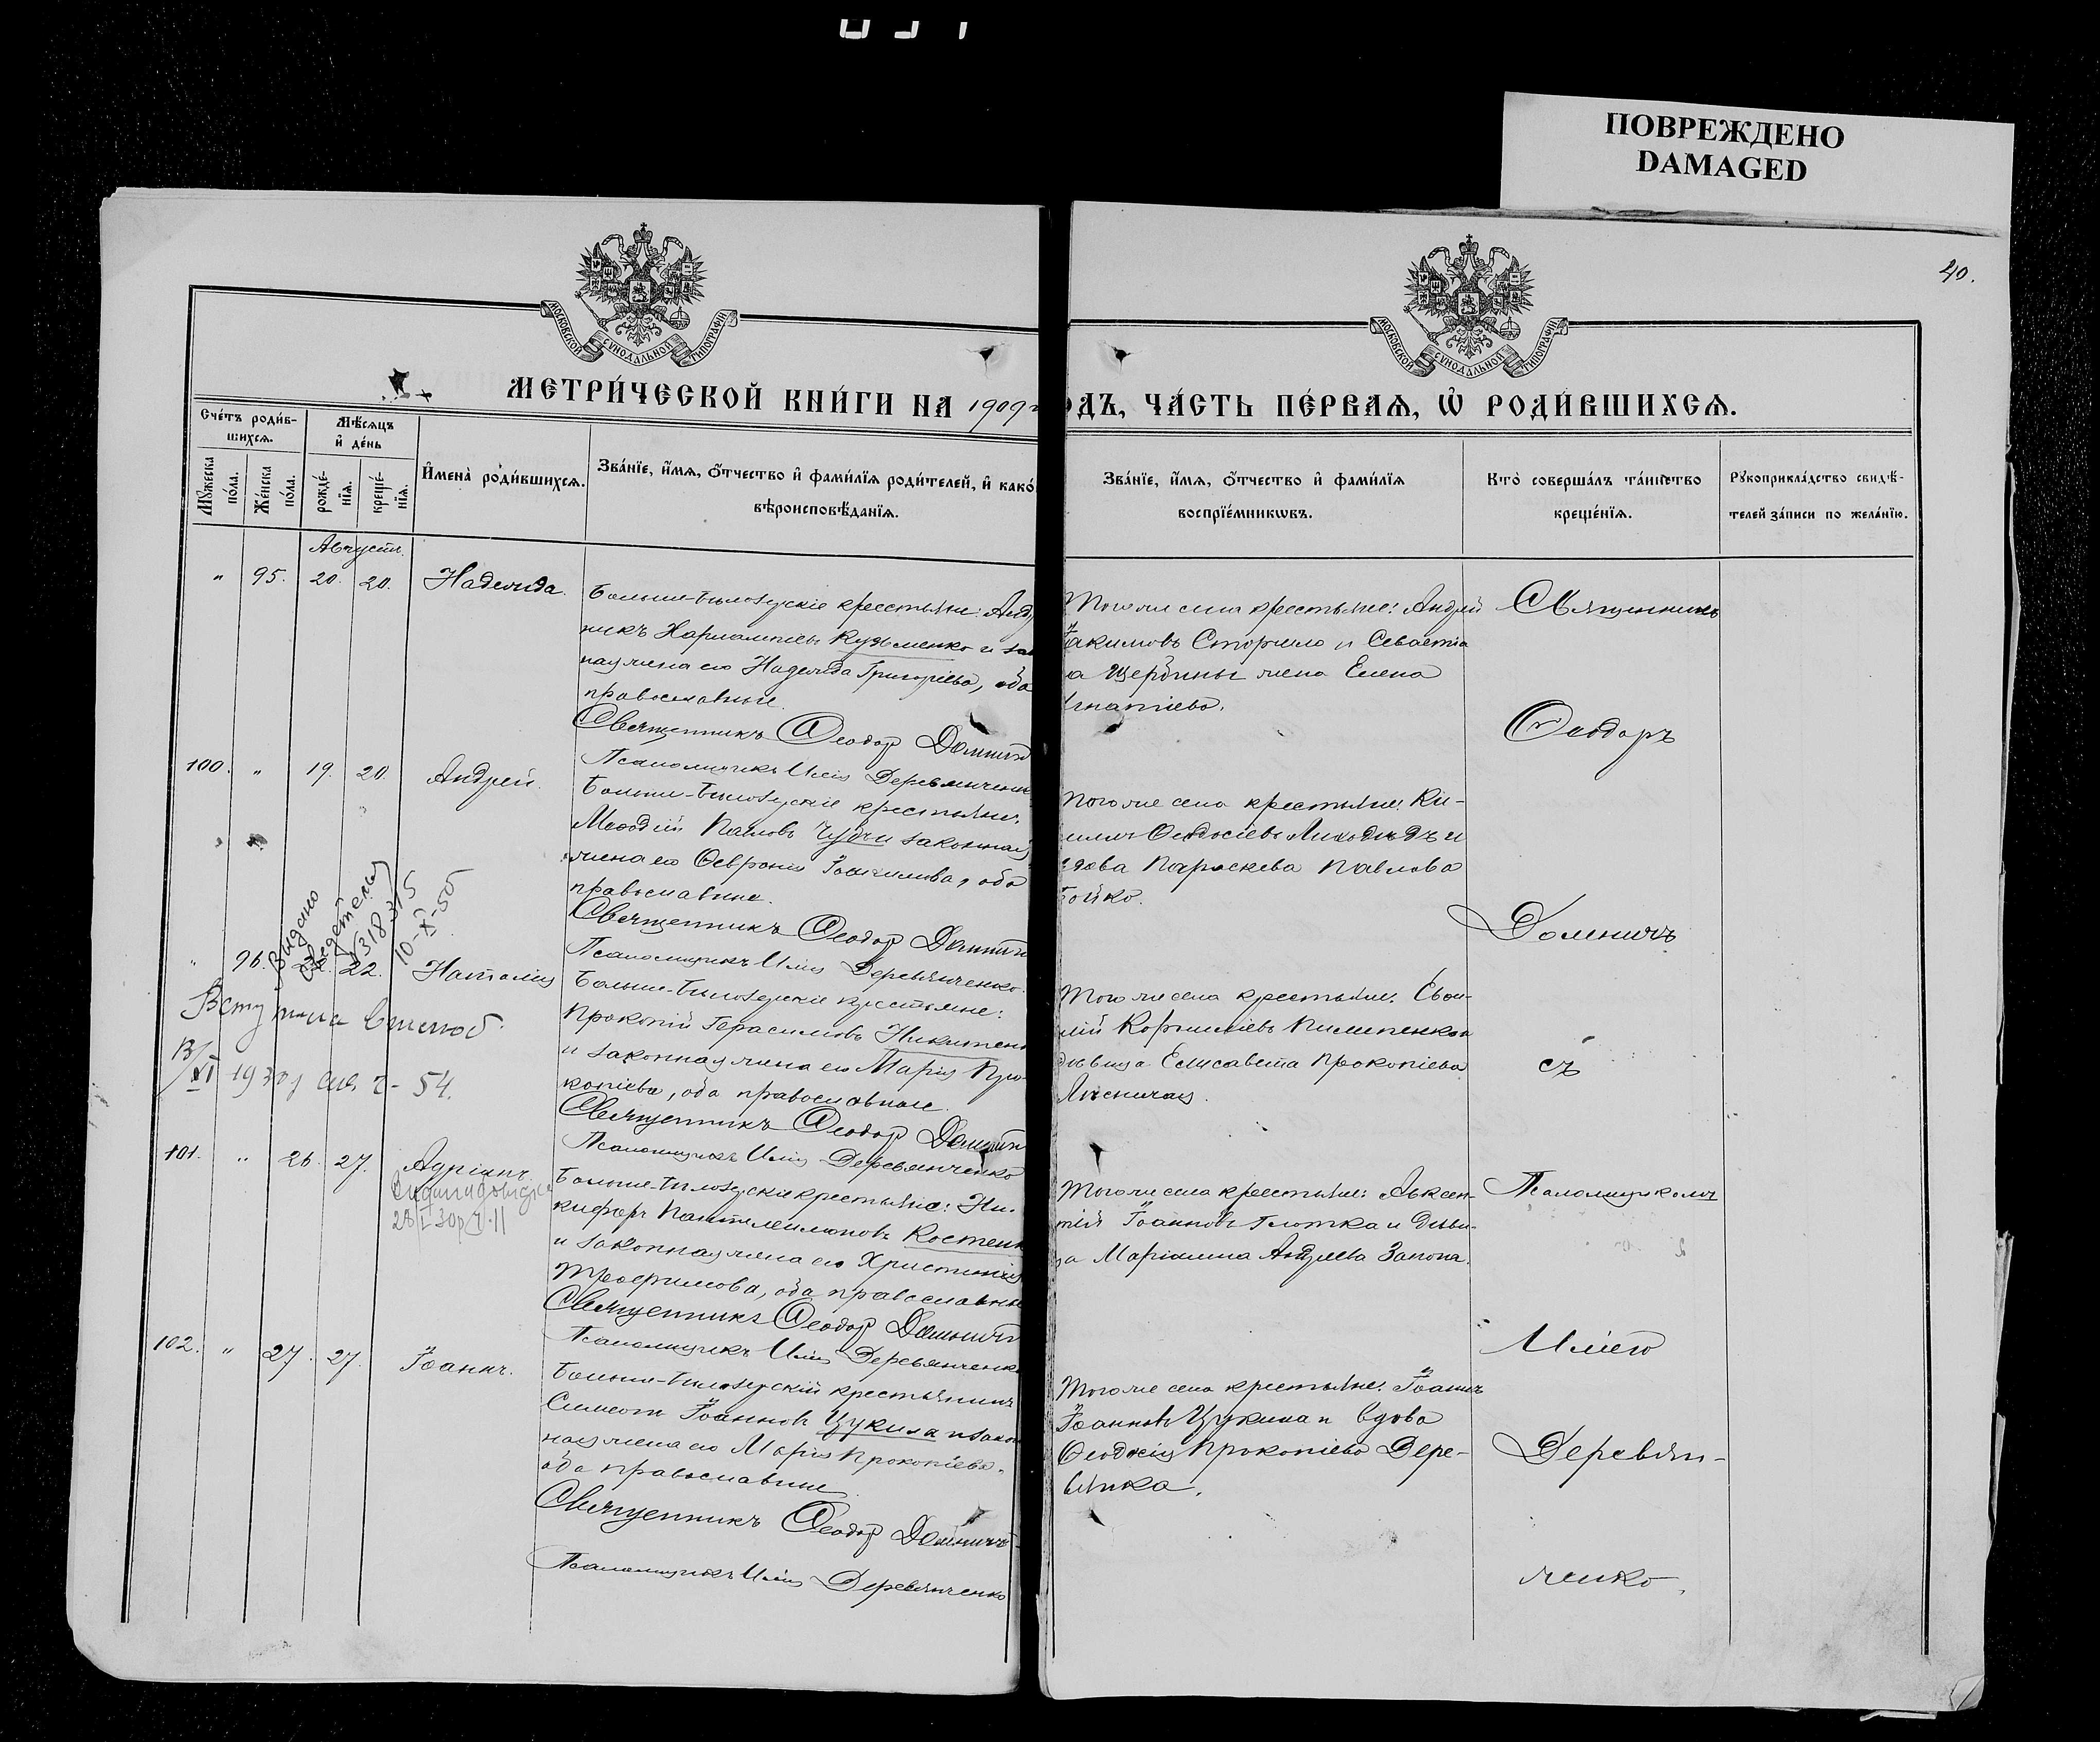 ПОВРЕЖДЕНО
DAMAGED
40.
МОСКОВСКОЙ СѴНОДАЛЬНОЙ ТИПОГРАФІИ
МОСКОВСКОЙ СѴНОДАЛЬНОЙ ТИПОГРАФІИ
МЕТРИ́ЧЕСКОЙ КНИ́ГИ НА 1909 г
ОДЪ, ЧА́СТЬ ПЕ́РВАѦ, Ѡ РОДИ́ВШИХСѦ.
Сче́тъ роди́в-
шихсѧ.
Мꙋжеска по́ла.
Же́нска по́ла.
Мѣ́сѧцъ
и де́нь
рожде́-нїѧ.
креще́-нїѧ.
Имена̀ роди́вшихсѧ.
Зва́нїе, и́мѧ, ѻ́тчество и фами́лїѧ роди́телей, и како́
вѣроисповѣ́данїѧ.
Зва́нїе, и́мѧ, ѻ́тчество и фами́лїѧ
воспрїе́мникѡвъ.
Кто̀ соверша́лъ та́инство
креще́нїѧ.
Рꙋкоприкла́дство свидѣ́-
телей за́писи по жела́нїю.
Августъ.
" 95. 20. 20. Надежда.
Больше-Бѣлозерскіе крестьяне: Анд
никъ Харлампіевъ Кузьменко и зак
ная жена его Надежда Григоріева, оба
православные.
Священникъ Ѳеодоръ Домнич
Псаломщикъ Илія Деревянченк
Того же села крестьяне: Андрей
Іакимовъ Сторчило и Севастіа
а Щербины жена Елена
Игнатіева.
Священникъ
Ѳеодоръ
100. " 19. 20. Андрей.
Больше-Бѣлозерскіе крестьяне:
Меѳодій Павловъ Чубъ и законная
жена его Февронія Іоакимова, оба
православные.
Священникъ Ѳеодоръ Домнич
Псаломщикъ Илія Деревянченко.
Того же села крестьяне: Ки-
Ѳеодосіевъ Лиходѣдъ и
вдова Параскева Павлова
Бойко.
Домничъ
" 96. 22. 22. Наталія
Выдано
свидетельс
№318315
10-XI-50г
Вступила в шлюб
13/XI 1930 г 54.
Больше-Бѣлозерскіе крестьяне:
Прокопій Герасимовъ Никитенк
и законная жена его Марія Про-
копіева, оба православные.
Священникъ Ѳеодоръ Домнич
Псаломщикъ Илія Деревянченко
Того же села крестьяне:
Корниліевъ Пилипенко и
дѣвица Елисавета Прокопіева
Лисничая.
съ
101. " 26. 27. Адріанъ.
Больше-Бѣлозерскіе крестьяне: Ни-
кифоръ Пантелеимоновъ Костенк
и законная жена его Христина
Трофимова, оба православные
Священникъ Ѳеодоръ Домнич
Псаломщикъ Илія Деревянченк
Того же села крестьяне: Авксен-
тій Іоанновъ Глотка и дѣви-
ца Маріамна Андреева Запона.
Псаломщикомъ
Иліею
102. " 27. 27. Іоаннъ.
Больше-Бѣлозерскій крестьянинъ
Симеонъ Іоанновъ Цукила и закон
ная жена его Марія Прокопіева,
оба православные.
Священникъ Ѳеодоръ Домничъ
Псаломщикъ Илія Деревянченко
Того же села крестьяне: Іоаннъ
Іоанновъ Цукила и вдова
Ѳеодосія Прокопіева Дере-
вянка.
Деревян-
ченко.